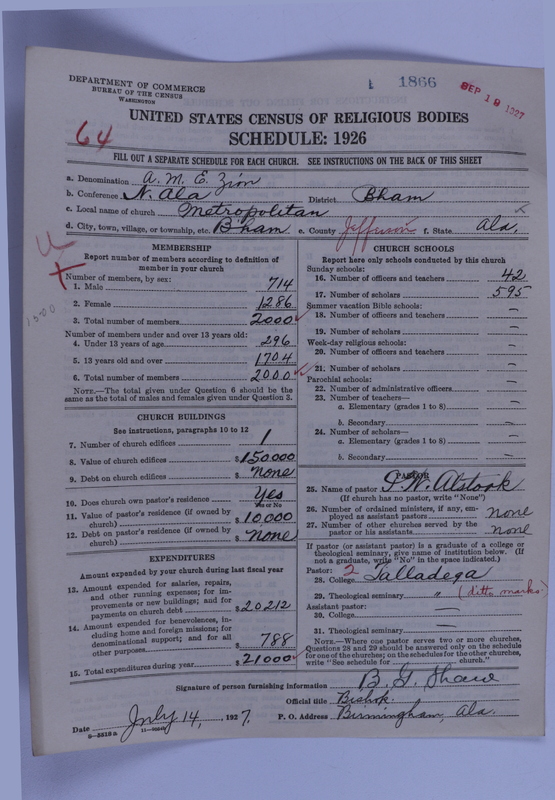 DEPARTMENT OF COMMERCE
BUREAU OF THE CENSUS
WASHINGTON
1 1866
SEP 19 1927
64
UNITED STATES CENSUS OF RELIGIOUS BODIES
SCHEDULE: 1926
FILL OUT A SEPARATE SCHEDULE FOR EACH CHURCH. SEE INSTRUCTIONS ON THE BACK OF THIS SHEET
a. Denomination A. M. E. Zion
b. Conference N. Ala District Bham
c. Local name of church Metropolitan
d. City, town, village, or township, etc. Bham e. County Jefferson f. State Ala.
1500
MEMBERSHIP
Report number of members according to definition of
member in your church
Number of members, by sex:
1. Male 714
2. Female 1286
3. Total number of members 2000
Number of members under and over 13 years old:
4. Under 13 years of age 296
5. 13 years old and over 1704
6. Total number of members 2000
NOTE.—The total given under Question 6 should be the
same as the total of males and females given under Question 3.
CHURCH BUILDINGS
See instructions, paragraphs 10 to 12
7. Number of church edifices 1
8. Value of church edifices $150000
9. Debt on church edifices $ None
10. Does church own pastor's residence Yes
Yes or No
11. Value of pastor's residence (if owned by
church) $10,000
12. Debt on pastor's residence (if owned by
church) $ None
EXPENDITURES
Amount expended by your church during last fiscal year
13. Amount expended for salaries, repairs,
and other running expenses; for im-
provements or new buildings; and for
payments on church debt $20212
14. Amount expended for benevolences, in-
cluding home and foreign missions; for
denominational support; and for all
other purposes $788
15. Total expenditures during year $21000
CHURCH SCHOOLS
Report here only schools conducted by this church
Sunday schools:
16. Number of officers and teachers 42
17. Number of scholars 595
Summer vacation Bible schools:
18. Number of officers and teachers —
19. Number of scholars —
Week-day religious schools:
20. Number of officers and teachers —
21. Number of scholars —
Parochial schools:
22. Number of administrative officers —
23. Number of teachers—
a. Elementary (grades 1 to 8) —
b. Secondary —
24. Number of scholars—
a. Elementary (grades 1 to 8) —
b. Secondary —
PASTOR
25. Name of pastor P. W. Alstook
(If church has no pastor, write "None")
26. Number of ordained ministers, if any, em-
ployed as assistant pastors None
27. Number of other churches served by the
pastor or his assistants None
If pastor (or assistant pastor) is a graduate of a college or
theological seminary, give name of institution below. (If
not a graduate, write "No" in the space indicated.)
Pastor: 2
28. College Talladega
29. Theological seminary " (ditto marks)
Assistant pastor:
30. College —
31. Theological seminary —
NOTE.—Where one pastor serves two or more churches,
Questions 28 and 29 should be answered only on the schedule
for one of the churches; on the schedules for the other churches,
write "See schedule for church."
Signature of person furnishing information B. G. Shaw
Official title Bishop.
Date July 14, 1927. P. O. Address Birmingham, Ala.